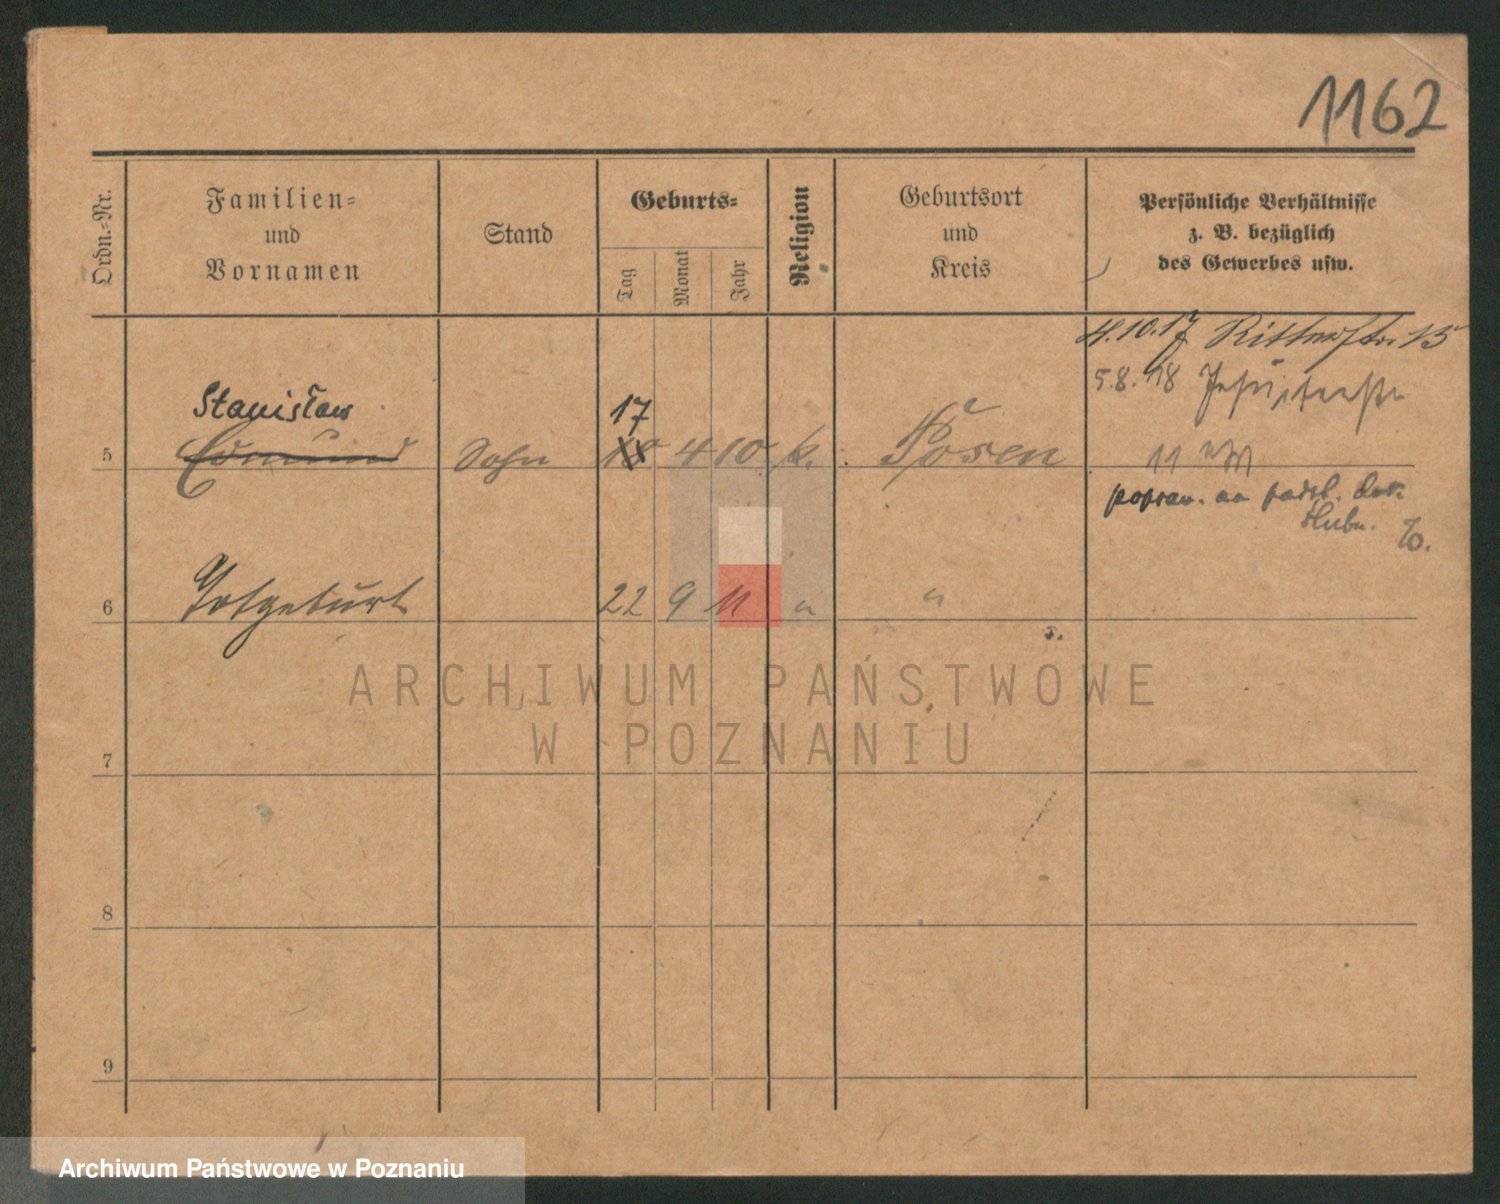 1162
Ordn.-Nr.
Familien-
und
Vornamen
Stand
Geburts-
Tag
Monat
Jahr
Religion
Geburtsort
und
Kreis
Persönliche Verhältnisse
z. B. bezüglich
des Gewerbes usw.
4.10.17 Ritterstr. 15
5.8.18
Stanisław
17
5 Edmund Sohn 4 10 k. Posen
11
popraw. na
6 Totgeburt 22 9 11 " "
ARCHIWUM PAŃSTWOWE
W POZNANIU
7
8
9
Archiwum Państwowe w Poznaniu